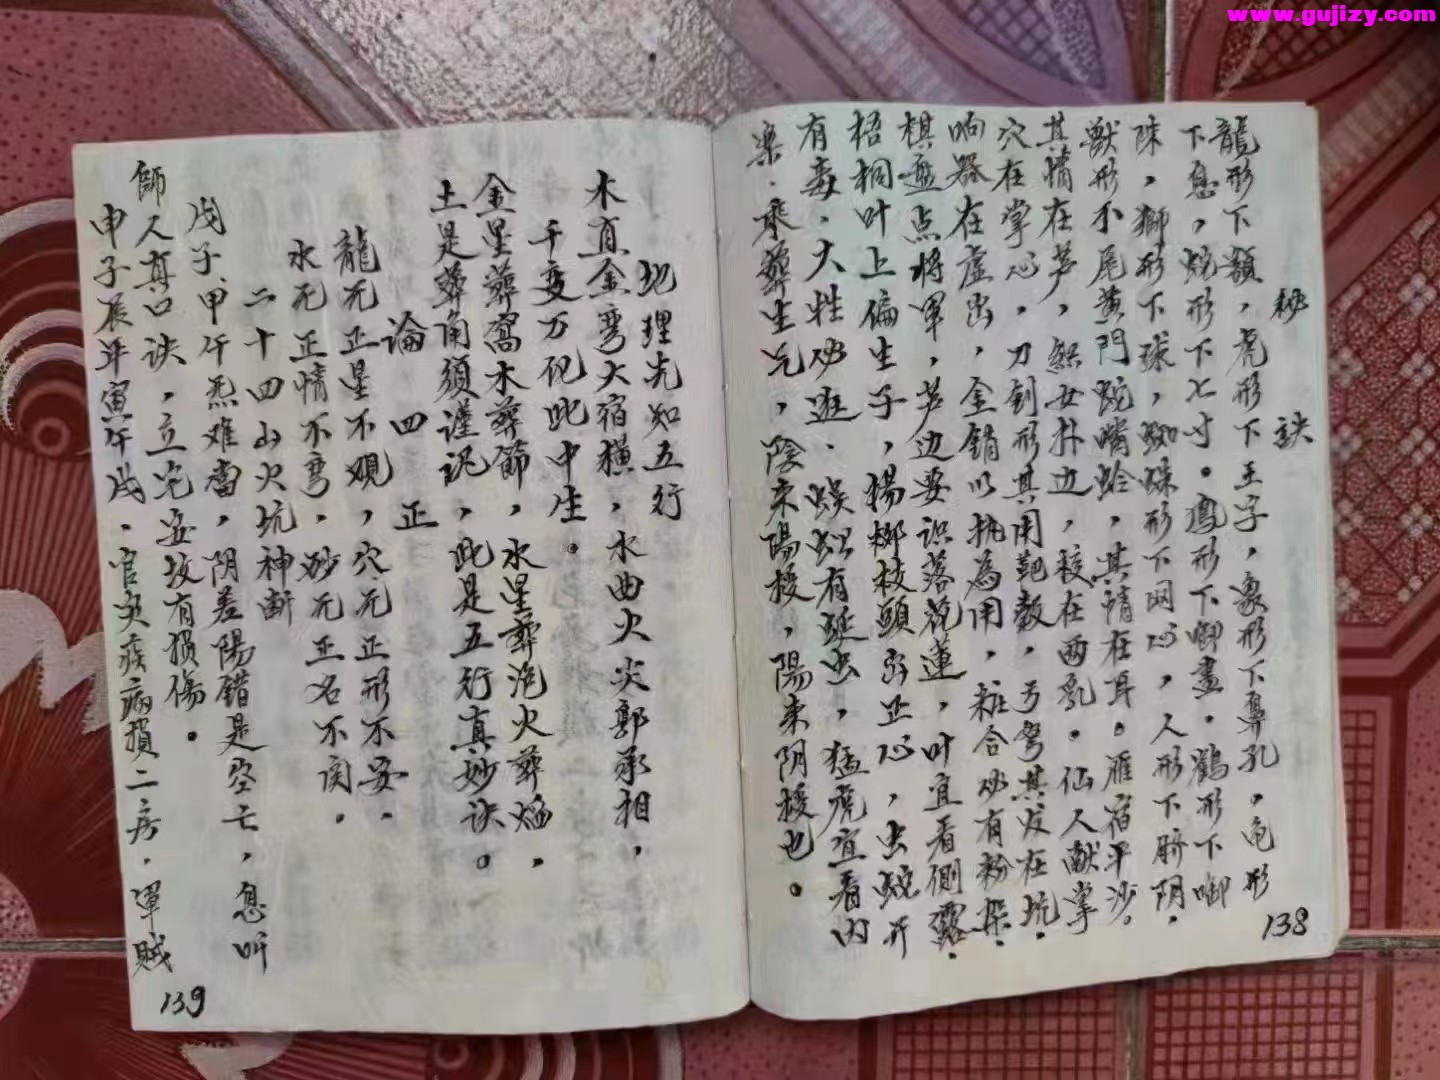 www.gujizy.com
秘訣
龍形下顙，虎形下王字，象形下鼻孔，龟形
下息，蛇形下七寸。鳳形下啣盡。鶴形下啣
珠，獅形下球，蜘蛛形下网心，人形下脐阴。
獸形不尾黄門蛇嘴蛤，其情在耳。雁宿平沙。
其情在芦，女扑边，穴在两乳。仙人献掌
穴在掌心，刀剑形其用靶，弓弩其发在坑。
响器在虚出，金銷以执為用，粧合必有粉
棋盘点将軍，芦边要识落花蓮，叶宜看側露。
梧桐叶上偏生子，楊柳枝頭出正心，虫蛇开
有毒，大牲必逛．蜈蚣有蜒虫，猛虎宜看肉
乘葬生气，陰来陽授，陽来阴授也。
138
地理先知五行
木直金弯大宿横，水曲火尖郭承相，
千变万化此中生。
金星葬窩木葬節，水星葬泡火葬焰，
土是葬角須謹記，此是五行真妙诀。
論四正
龍无正星不观，穴无正形不安．
水无正情不弯，妙无正名不闻．
二十四山火坑神断
戊子、甲午炁难當，阴差陽错是空亡，息听
師人真口诀，立宅安坟有损傷。
申子辰年寅午戌．官灾疾病損二房．軍賊
139